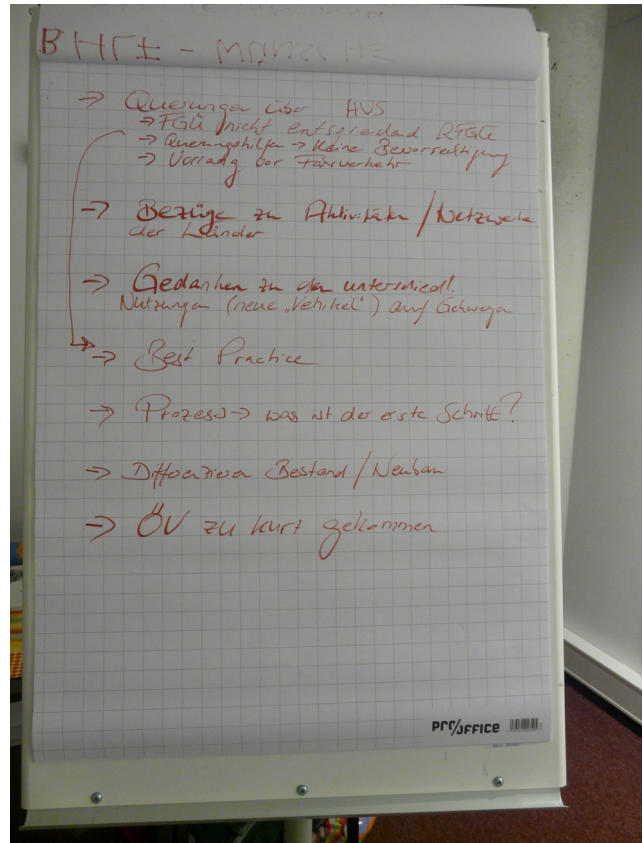 → Querungen über HVS
→ FGÜ nicht entspreched RFGÜ
→ Querungshilfen → Keine Bevorrechtigung
→ Vorrang vor Fahrverkehr
→ Bezüge zu Aktivitäten / Netzwerke
der Länder
→ Gedanken zu den unterschiedl.
Nutzungen (neue „Vehikel") auf Gehwegen
→ Best Practice
→ Prozess → was ist der erste Schritt?
→ Differenzieren Bestand / Neubau
→ ÖV zu kurz gekommen
PRO/OFFICE